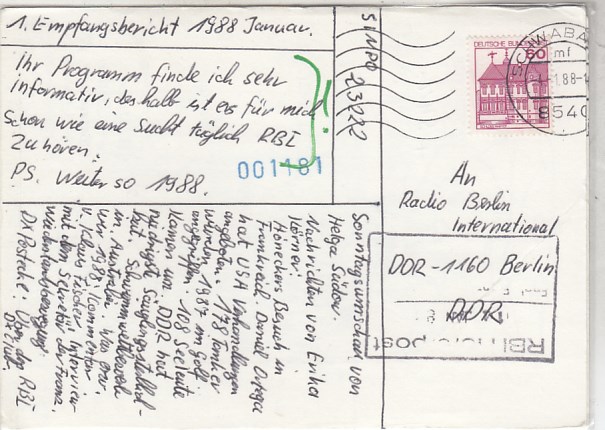 1. Empfangsbericht 1988 Januar.
Ihr Programm finde ich sehr
informativ, deshalb ist es für mich
schon wie eine Sucht täglich RBI
zu hören.
PS. Weiter so 1988.
!
001181
SINPO 23222
Sonntagsumschau von
Helga Südow.
Nachrichten von Erika
Körner.
Honeckers Besuch in
Frankreich. Daniel Ortega
hat USA Verhandlungen
angeboten. 178 Tanker
wurden 1987 im Golf
angegriffen. 108 Seeleute
kamen um. DDR hat
niedrigste Säuglingssterblich-
keit. Schwimmwettbewerb
in Australien. Was war
1988. Kommentar
v. Klaus Fischer. Interview
mit dem Sekretär der Franz.
Friedensbewegung.
DX Postecke: Vom RBI
DEUTSCHE BUNDESPOST
60
SCHWABA
mf
.1.88-1
8540
An
Radio Berlin
International
DDR-1160 Berlin
DDR
RBI post